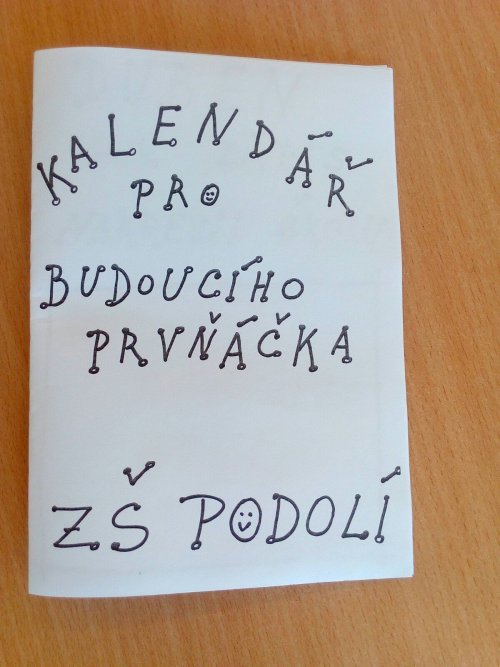 KALENDÁŘ
PRO
BUDOUCÍHO
PRVŇÁČKA
ZŠ PODOLÍ